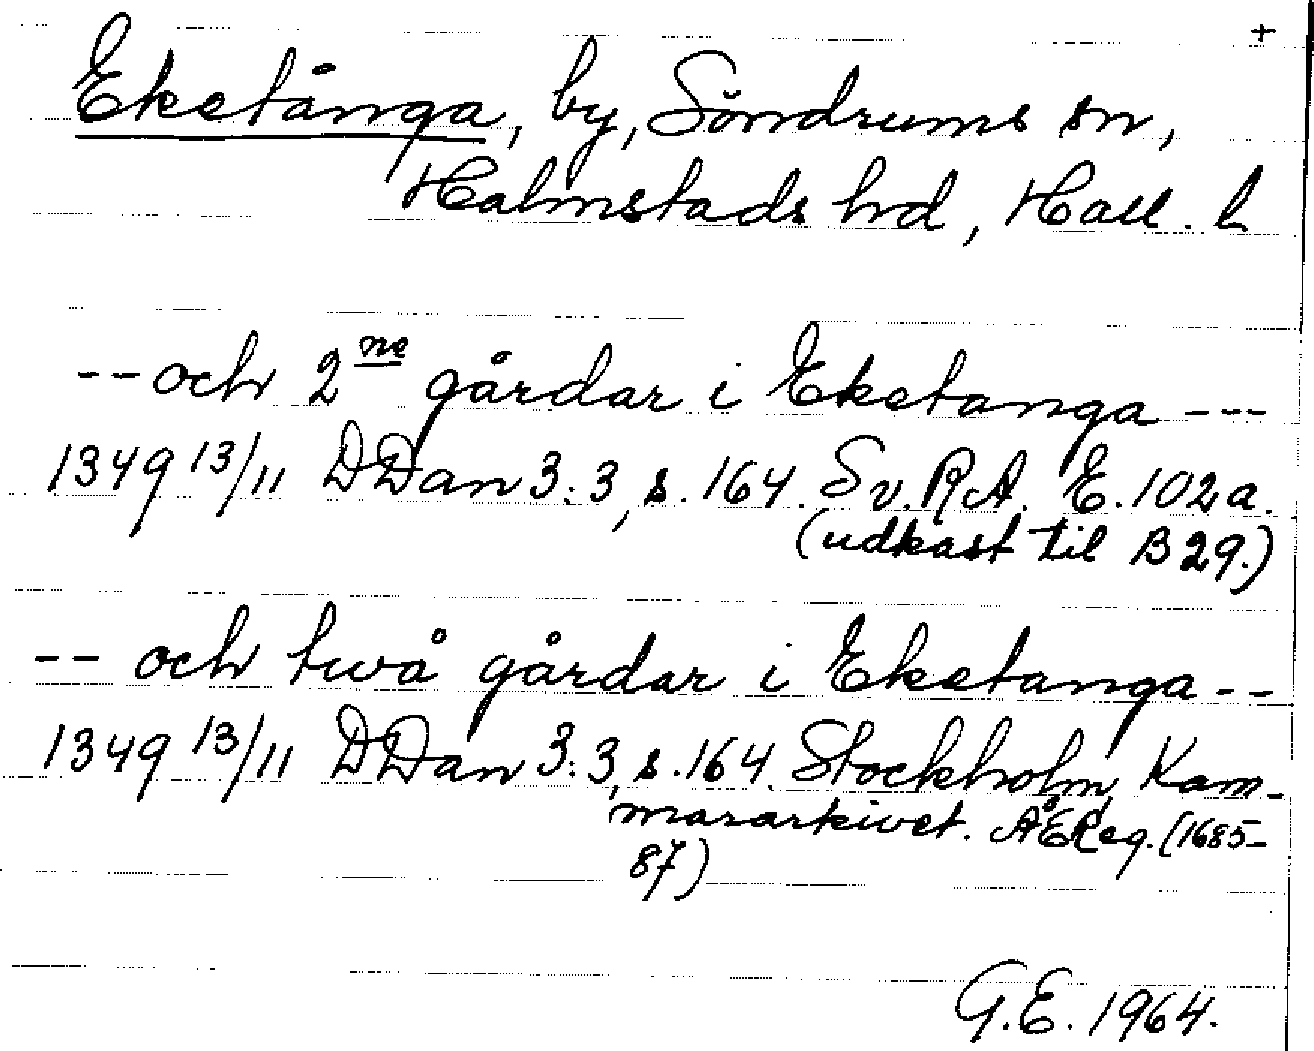 +
Eketånga, by, Söndrums sn,
Halmstads hrd, Hall. l.
-- och 2ne gårdar i Eketanga ---
1349 13/11 DDan 3:3, s. 164. Sv. RA. E. 102a.
(udkast til B 29.)
-- och twå gårdar i Eketanga --
1349 13/11 DDan 3:3, s. 164. Stockholm, Kam-
mararkivet. ÅEReg. (1685-
87)
G.E. 1964.